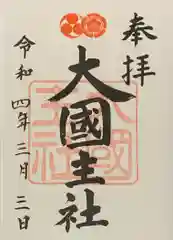 奉拝
大國主社
令和四年三月三日